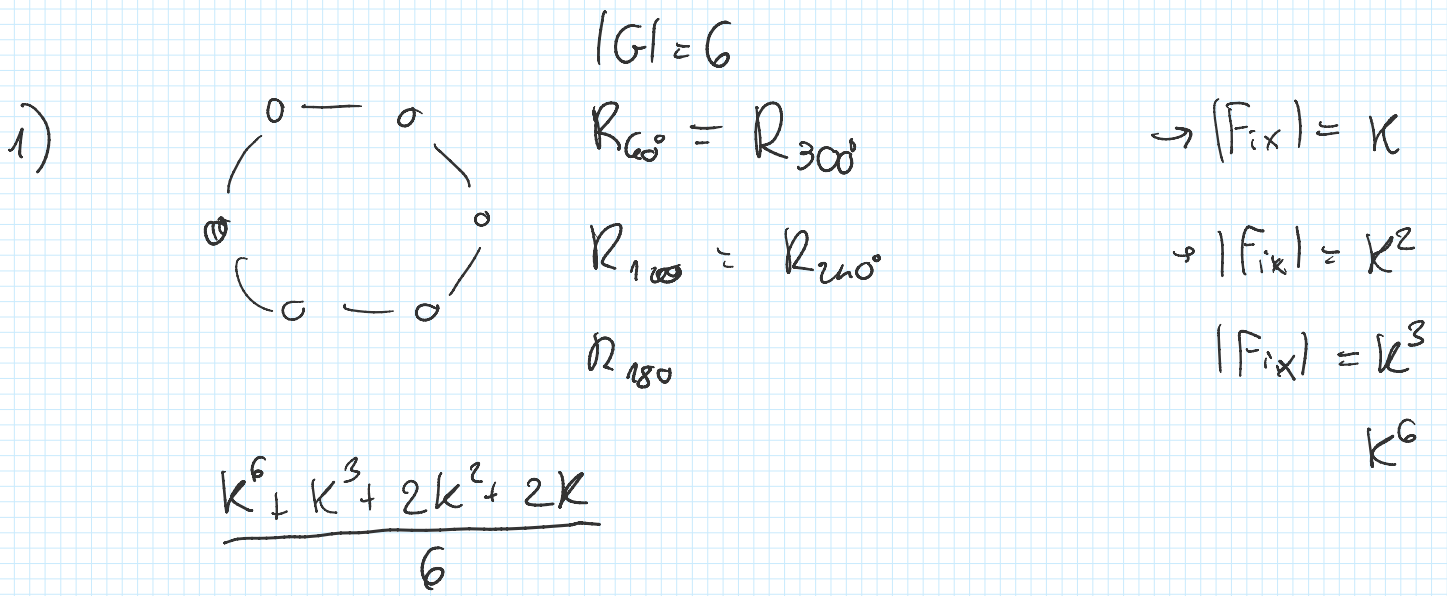 |G| = 6
1)
R60° = R300° → |Fix| = K
R120° = R240° → |Fix| = K²
R180 |Fix| = K³
K⁶
K⁶ + K³ + 2K² + 2K
6